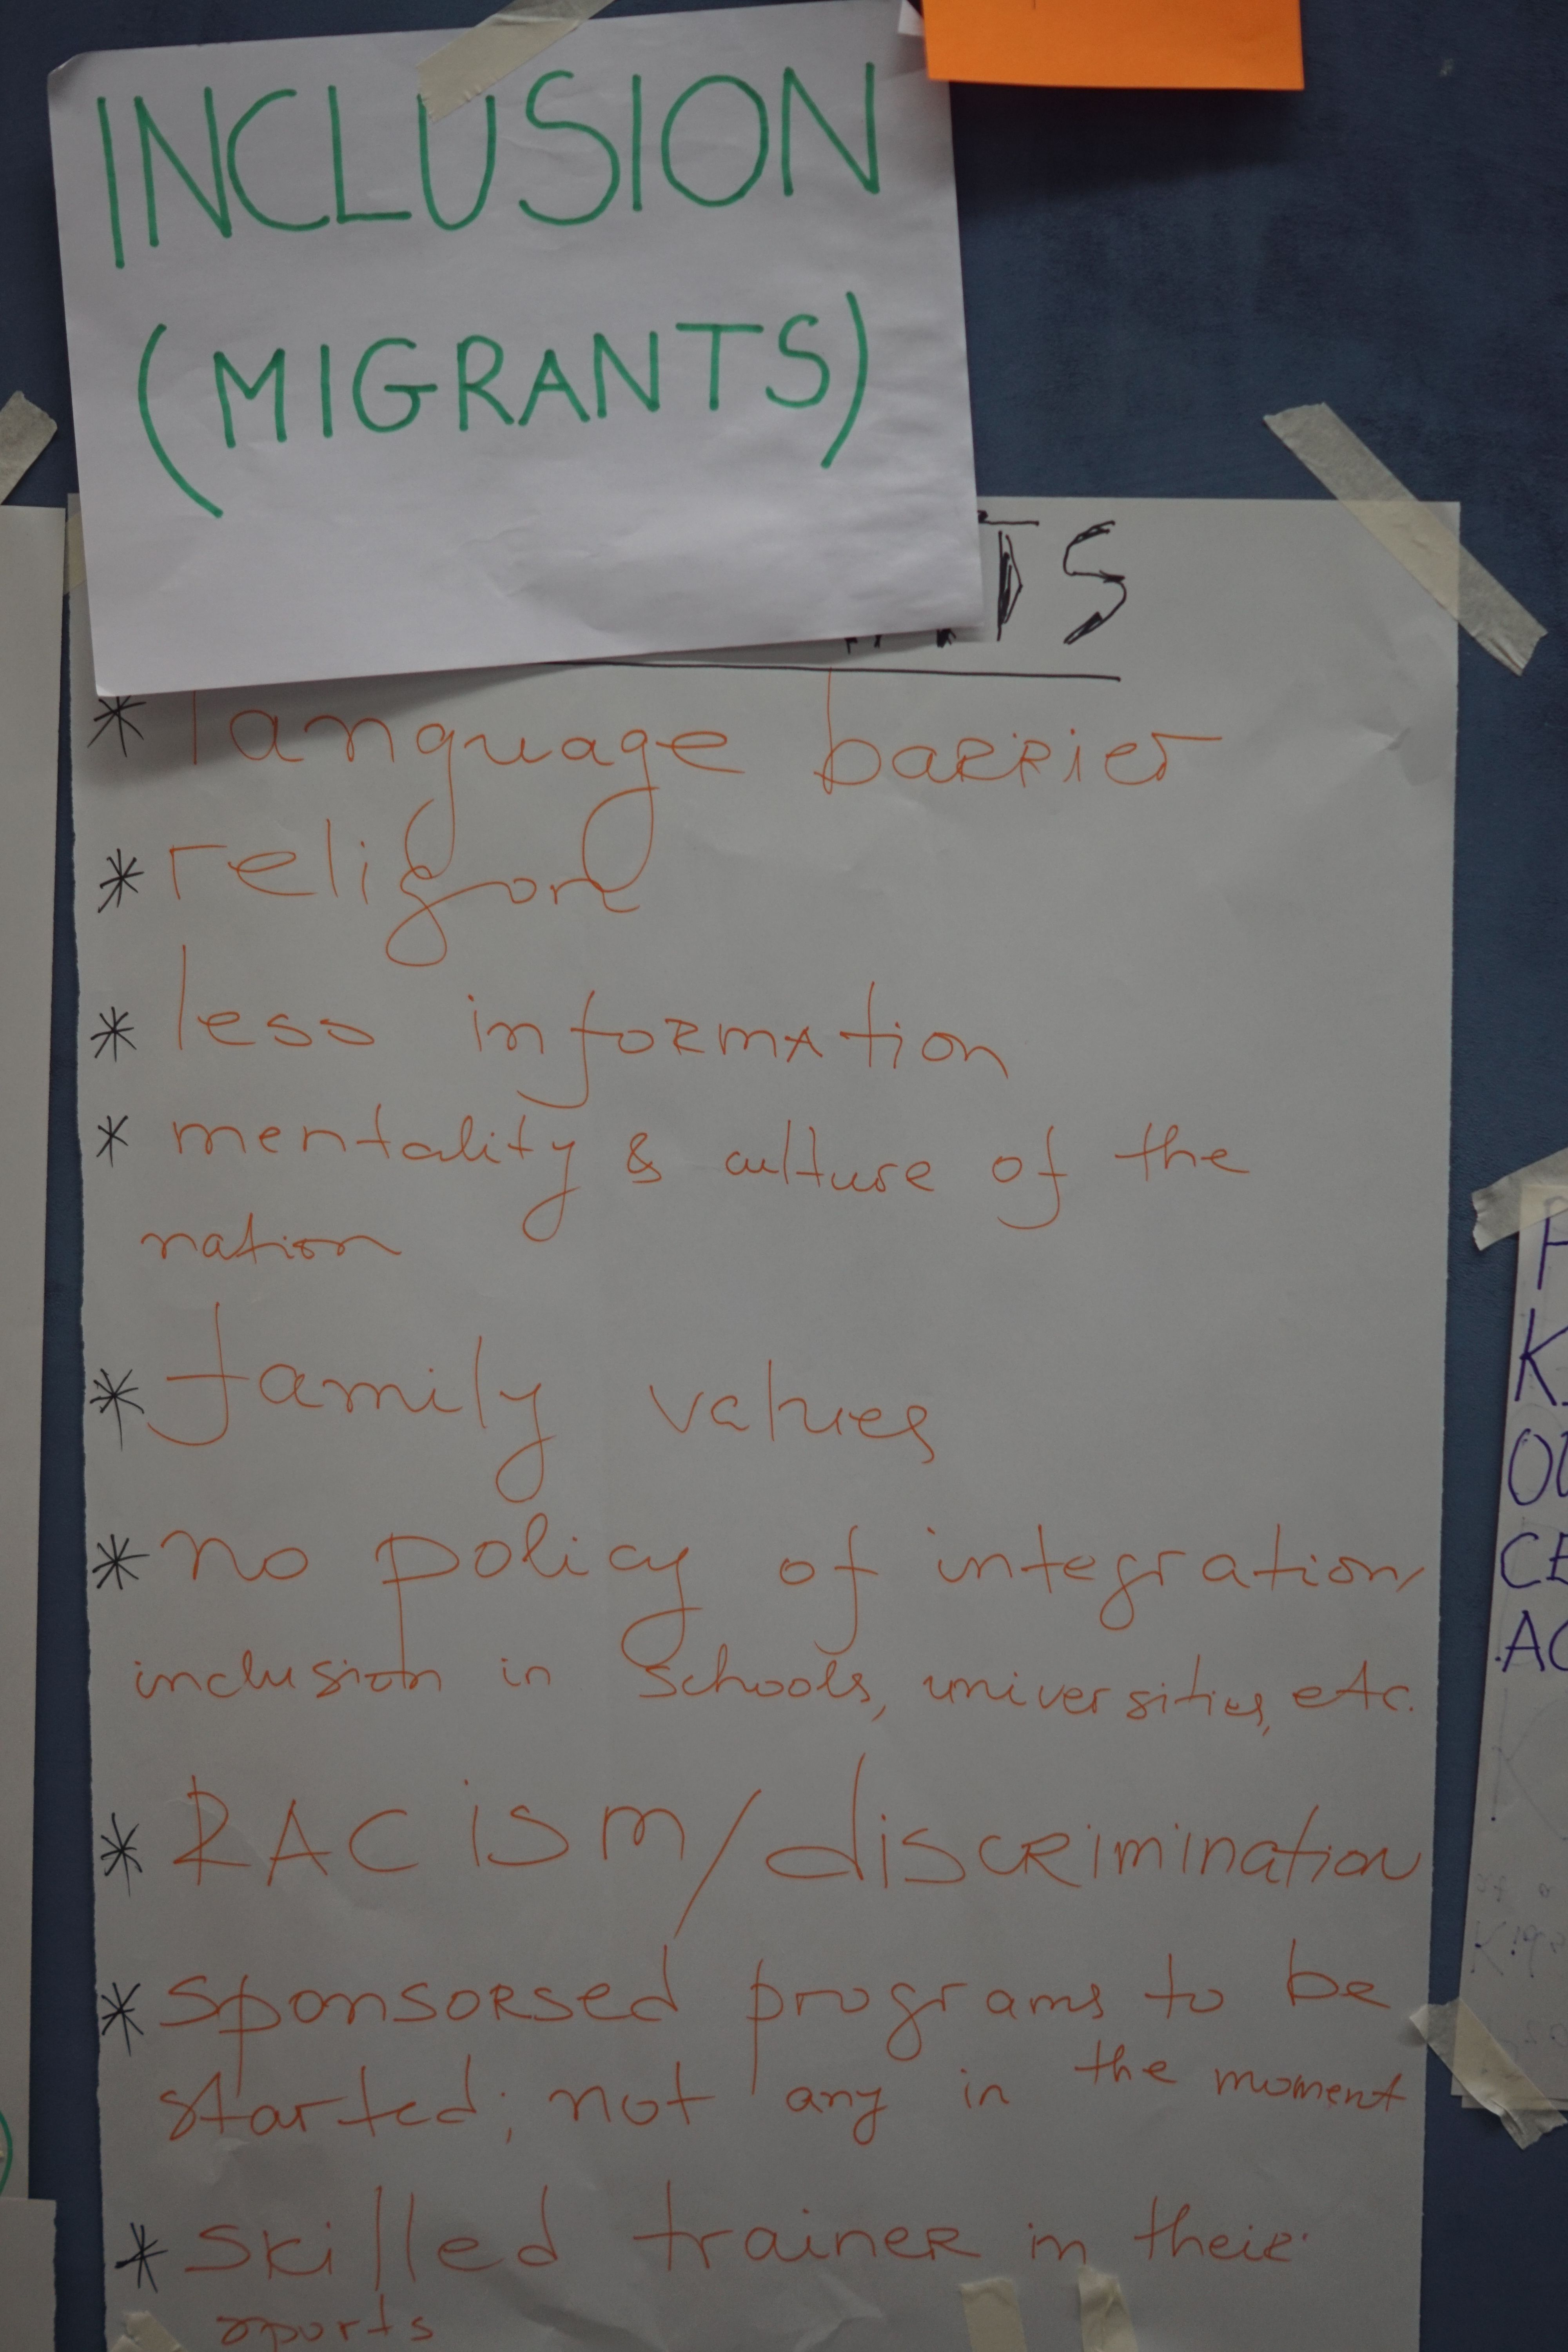 INCLUSION
(MIGRANTS)
* language barrier
* religon
* less information
* mentality & culture of the
nation
* family values
* no policy of integration,
inclusion in schools, universities, etc.
* RACISM/discrimination
* sponsorsed programs to be
started; not any in the moment
* skilled trainer in their
sports